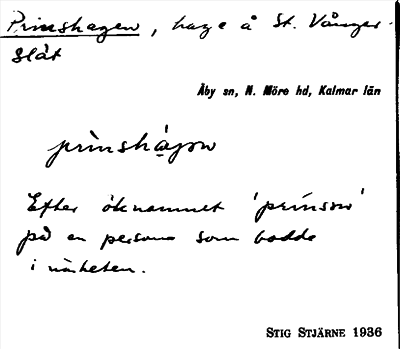 Prinshagen, hage å St. Vånger-
slät
Åby sn, N. Möre hd, Kalmar län
prinshágən
Efter öknamnet 'prinsən'
på en person som bodde
i närheten.
STIG STJÄRNE 1936